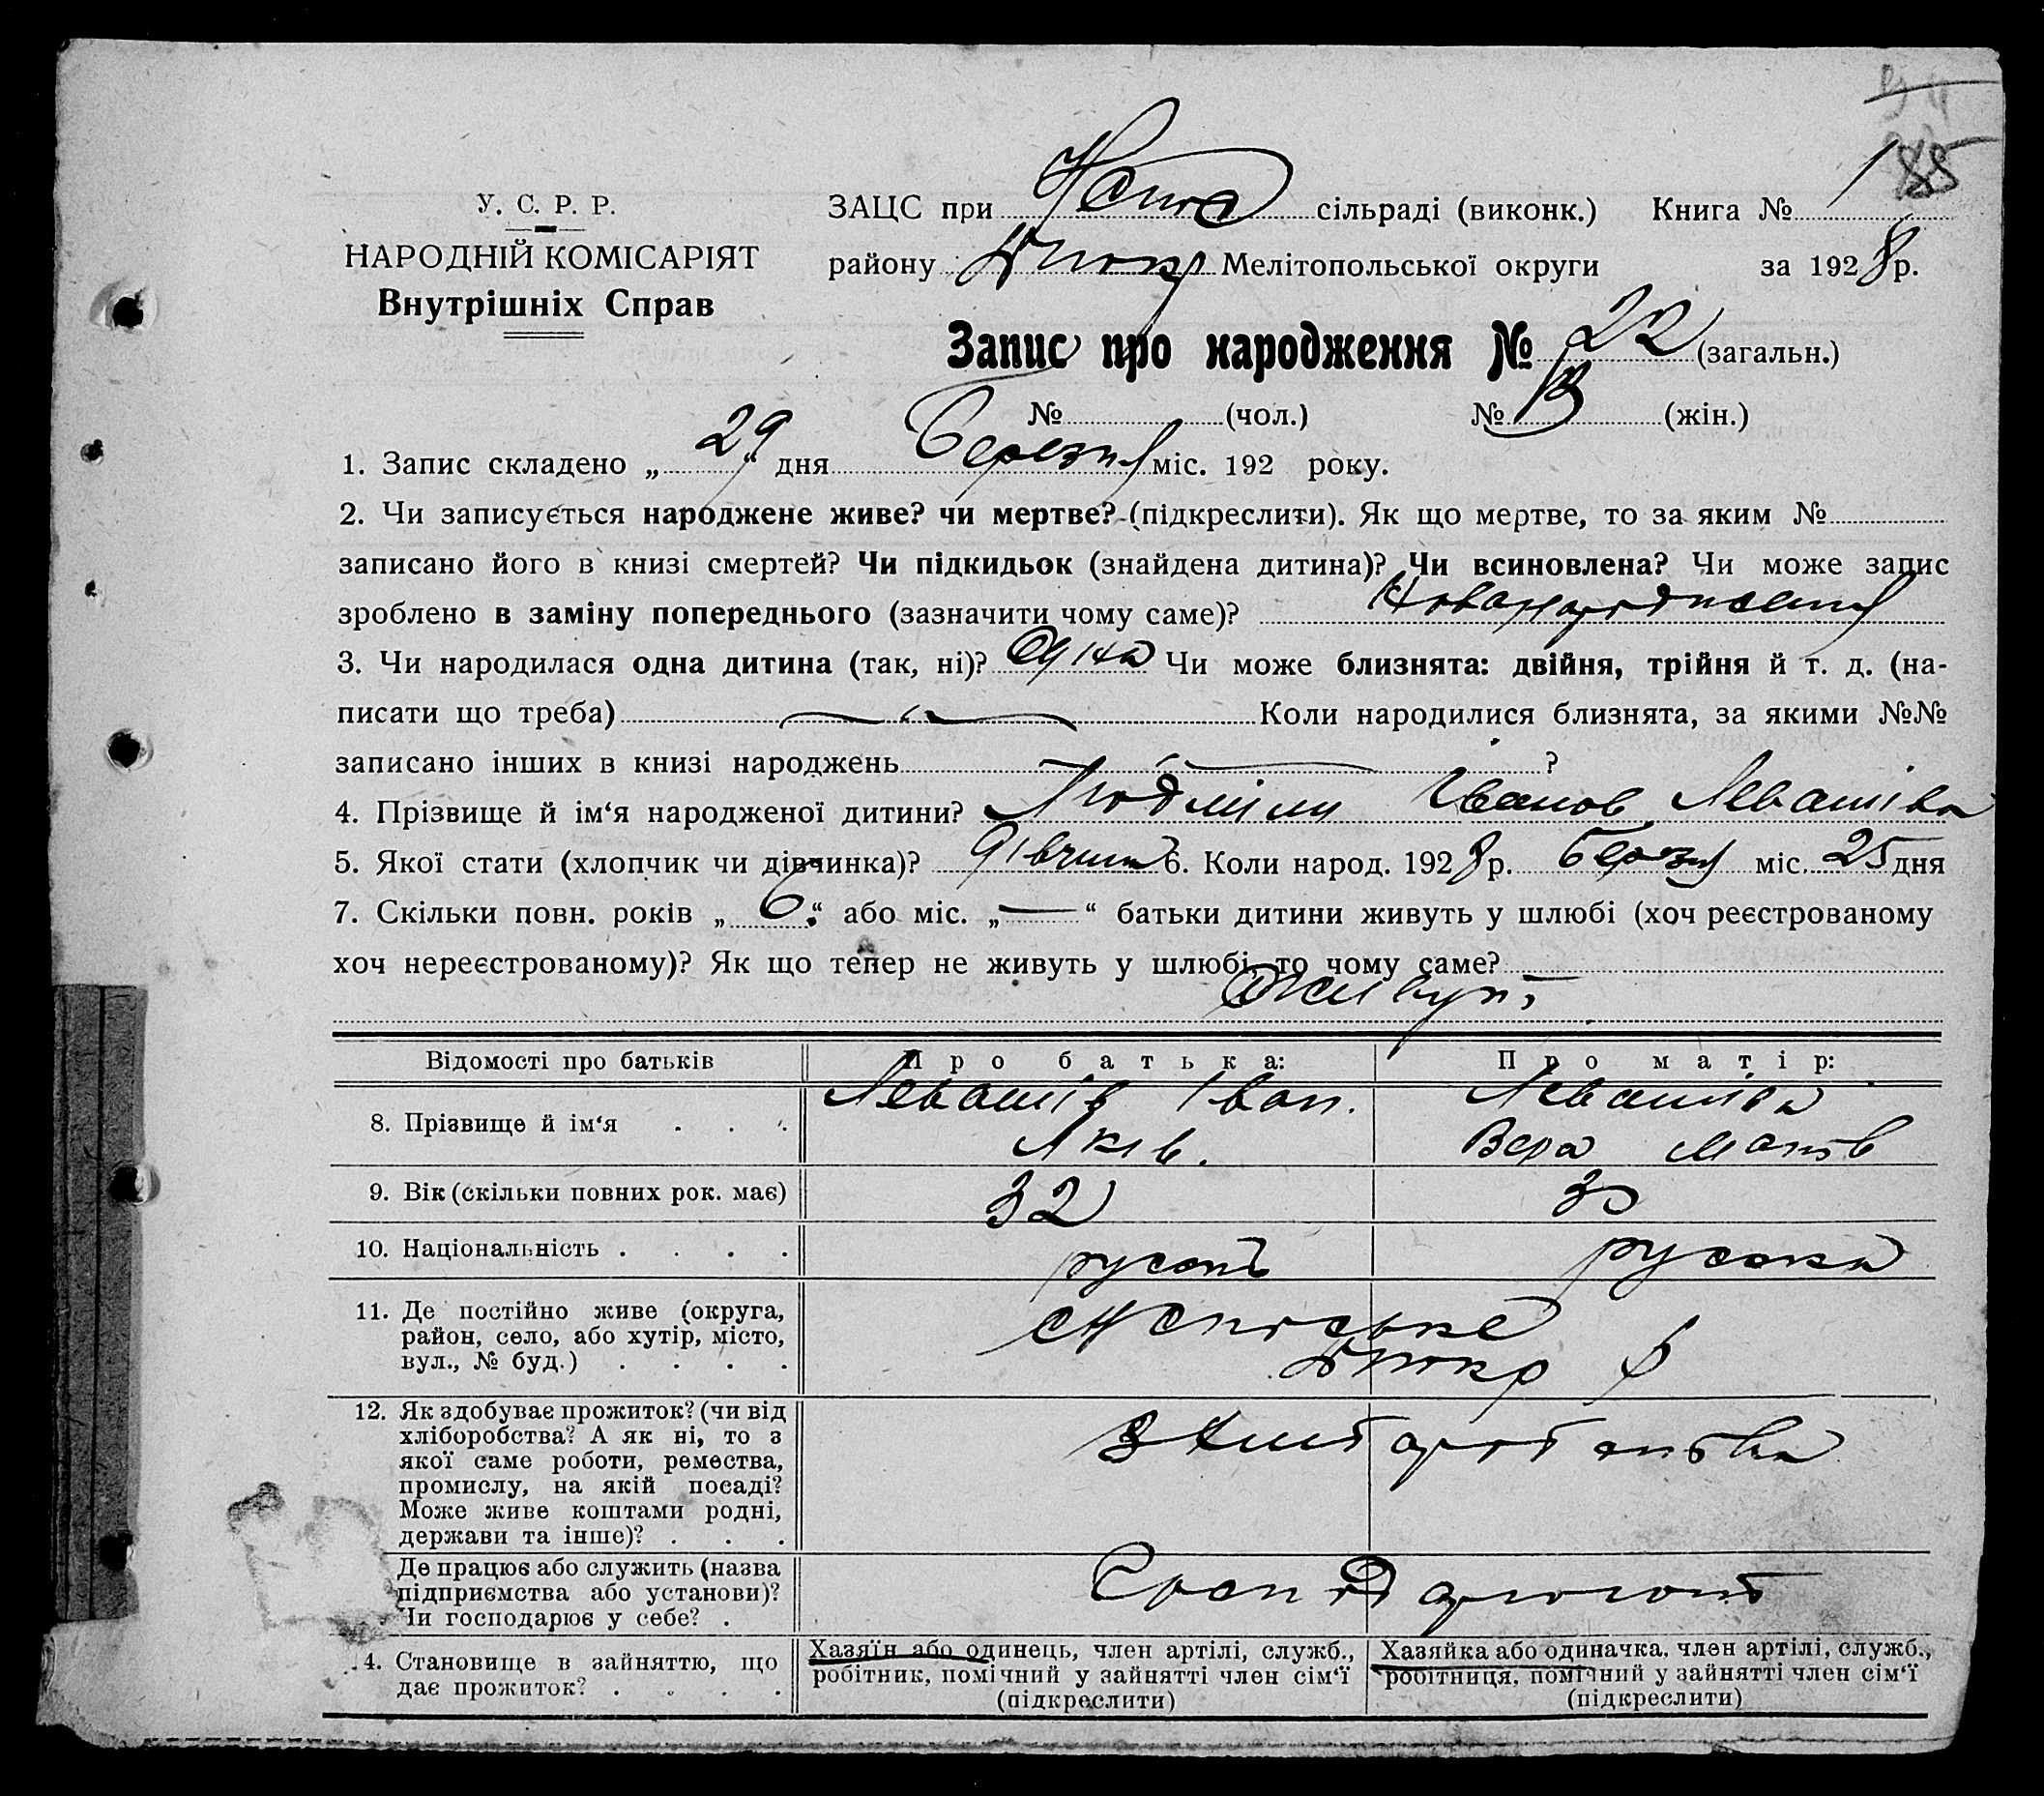 У. С. Р. Р.
НАРОДНІЙ КОМІСАРІЯТ
Внутрішніх Справ
ЗАЦС при сільраді (виконк.) Книга № 1
району Мелітопольської округи за 1928 р.
Запис про народження № 22 (загальн.)
№ (чол.) № 13 (жін.)
1. Запис складено „ 29 “ дня Березня міс. 192 року.
2. Чи записується народжене живе? чи мертве? (підкреслити). Як що мертве, то за яким №
записано його в книзі смертей? Чи підкидьок (знайдена дитина)? Чи всиновлена? Чи може запис
зроблено в заміну попереднього (зазначити чому саме)?
3. Чи народилася одна дитина (так, ні)? Одна Чи може близнята: двійня, трійня й т. д. (на-
писати що треба) Коли народилися близнята, за якими №№
записано інших в книзі народжень ?
4. Прізвище й ім‘я народженої дитини? Людміли Іванов Левашіва
5. Якої стати (хлопчик чи дівчинка)? дівчина 6. Коли народ. 1928 р. Березня міс. 25 дня
7. Скільки повн. років „ 6 “ або міс. „ — “ батьки дитини живуть у шлюбі (хоч реєстрованому
хоч нереєстрованому)? Як що тепер не живуть у шлюбі, то чому саме?
Живуть
Відомості про батьків Про батька: Про матір:
8. Прізвище й ім‘я Левашів Іван. Яків. Левашіва Вера Матв
9. Вік (скільки повних рок. має) 32 30
10. Національність руськ руська
11. Де постійно живе (округа,
район, село, або хутір, місто,
вул., № буд.)
12. Як здобуває прожиток? (чи від
хліборобства? А як ні, то з
якої саме роботи, ремества,
промислу, на якій посаді?
Може живе коштами родні,
держави та інше)?
Де працює або служить (назва
підприємства або установи)?
Чи господарює у себе?
4. Становище в зайняттю, що
дає прожиток?
Хазяїн або одинець, член артілі, служб.,
робітник, помічний у зайнятті член сім‘ї
(підкреслити)
Хазяйка або одиначка, член артілі, служб.,
робітниця, помічний у зайнятті член сім‘ї
(підкреслити)